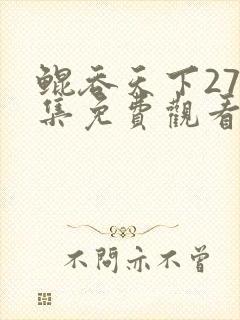 鲲吞天下27
集免費觀看
不問亦不曾